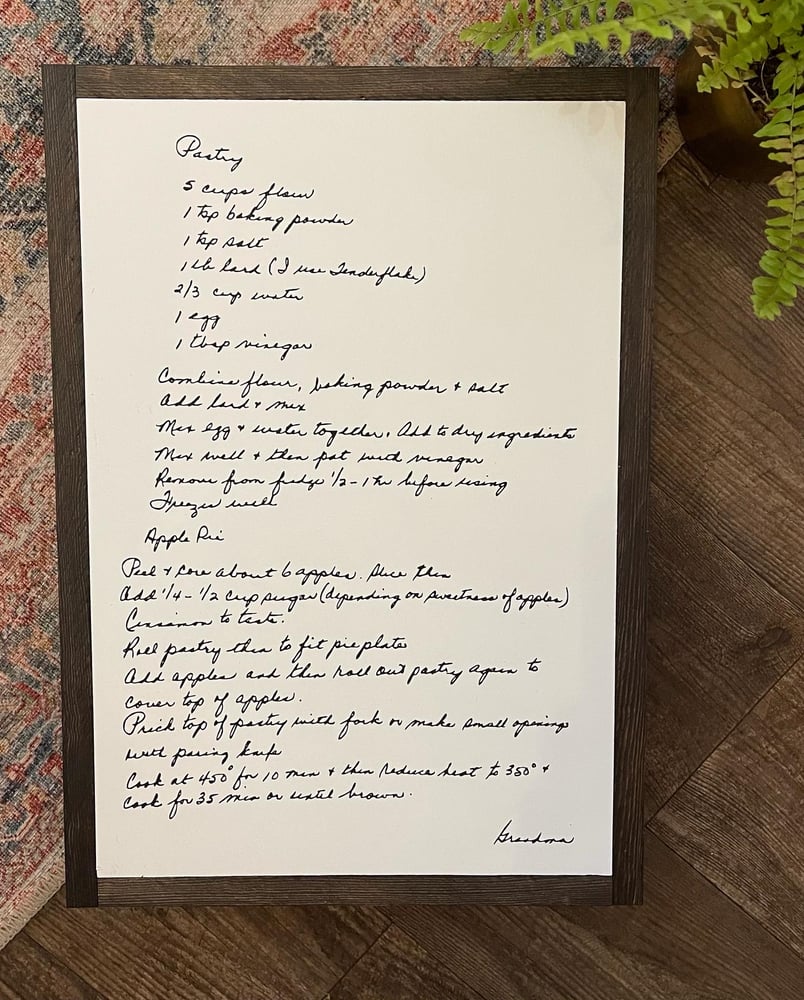 Pastry
5 cups flour
1 tsp baking powder
1 tsp salt
1 lb lard (I use Tenderflake)
2/3 cup water
1 egg
1 tbsp vinegar
Combine flour, baking powder + salt
Add lard + mix
Mix egg + water together. Add to dry ingredients
Mix well + then pat with vinegar
Remove from fridge 1/2 - 1 hr before using
Freezes well
Apple Pie
Peel + core about 6 apples. Slice thin
Add 1/4 - 1/2 cup sugar (depending on sweetness of apples)
Cinnamon to taste.
Roll pastry thin to fit pie plate
Add apples and then roll out pastry again to
cover top of apples.
Prick top of pastry with fork or make small openings
with paring knife
Cook at 450° for 10 min + then reduce heat to 350° +
cook for 35 min or until brown.
Grandma